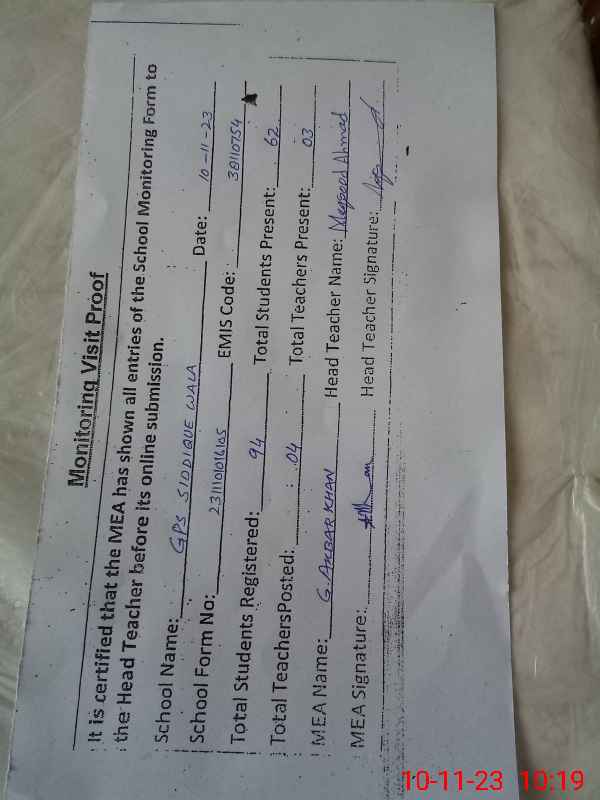 Monitoring Visit Proof
It is certified that the MEA has shown all entries of the School Monitoring Form to
the Head Teacher before its online submission.
School Name: GPS SIDDIQUE WALA Date: 10-11-23
School Form No: 231110101616S EMIS Code: 38110754
Total Students Registered: 94 Total Students Present: 62
Total TeachersPosted: 04 Total Teachers Present: 03
MEA Name: G. AKBAR KHAN Head Teacher Name: Maqsood Ahmad
MEA Signature: Head Teacher Signature:
10-11-23 10:19